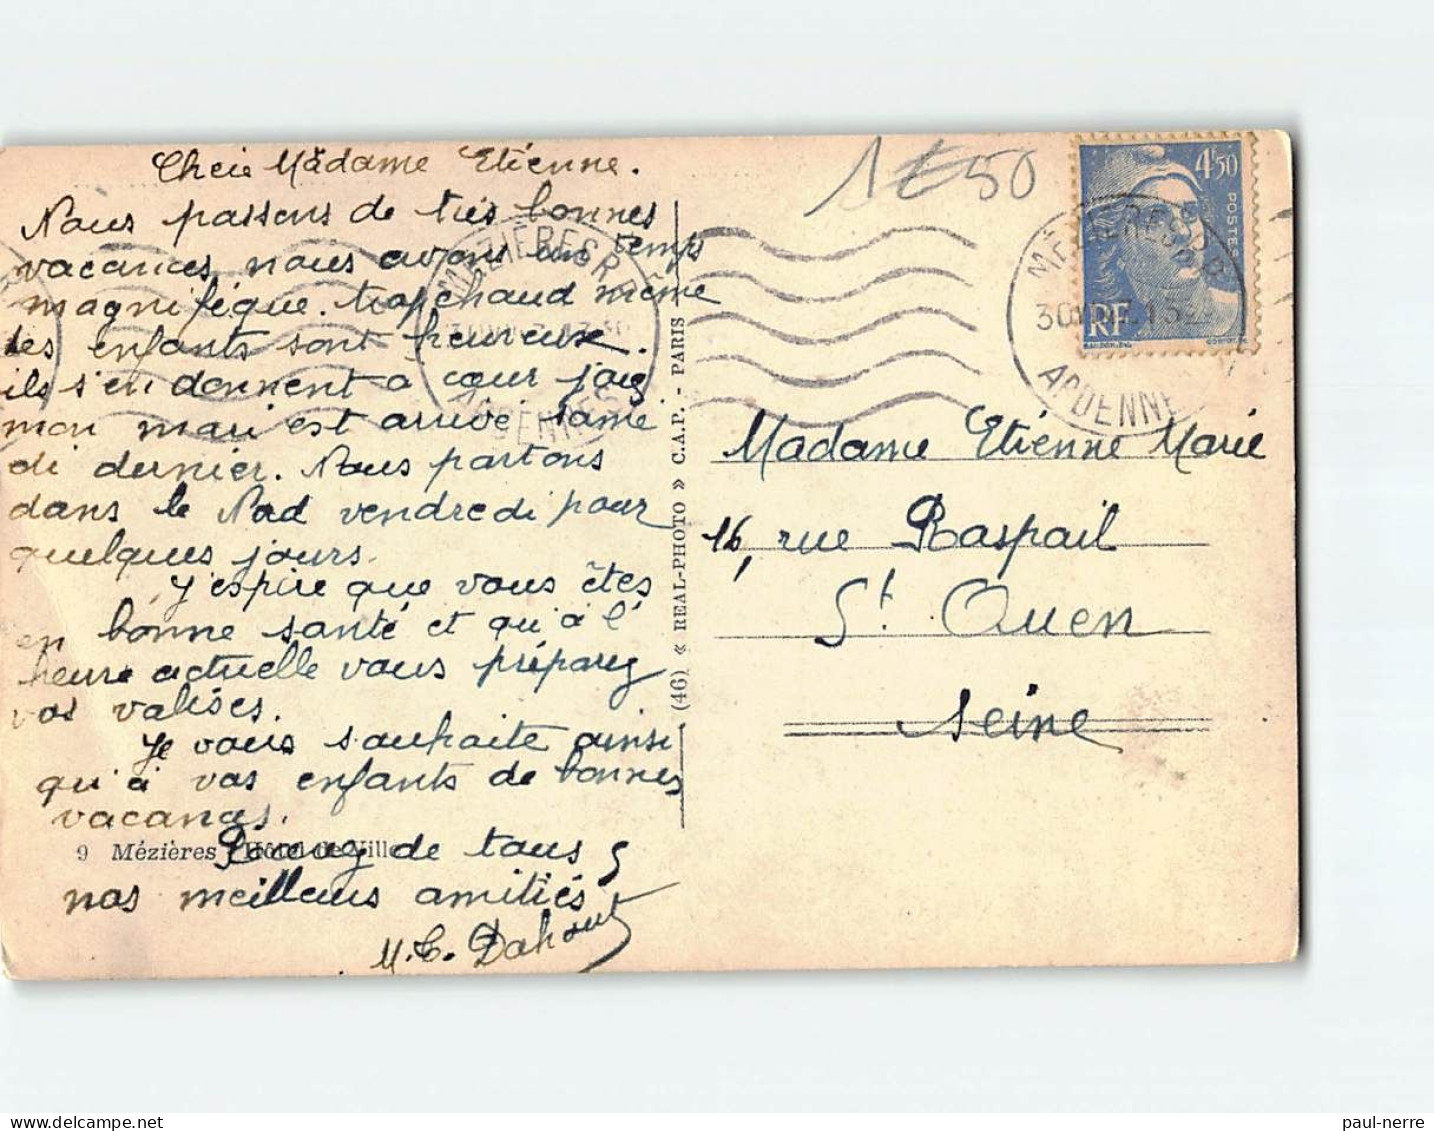 Chère Madame Etienne.
Nous passons de très bonnes
vacances, nous avons un temps
magnifique. trop chaud même
les enfants sont heureux.
ils s'en donnent a cœur joie
mon mari est arrivé same
di dernier. Nous partons
dans le Nord vendredi pour
quelques jours.
J'espère que vous êtes
en bonne santé et qu'à l'
heure actuelle vous préparez
vos valises.
Je vous souhaite ainsi
qu'à vos enfants de bonnes
vacances.
Recevez de tous
nos meilleurs amitiés
M. C. Dahout
9 Mézières - Hôtel de Ville
(46) « REAL-PHOTO » C.A.P. - PARIS
1€50
4f50
POSTES
RF
MÉZIÈRES R.P.
ARDENNES
MÉZIÈRES R.P.
ARDENNES
Madame Etienne Marie
16, rue Raspail
St. Ouen
Seine
paul-nerre